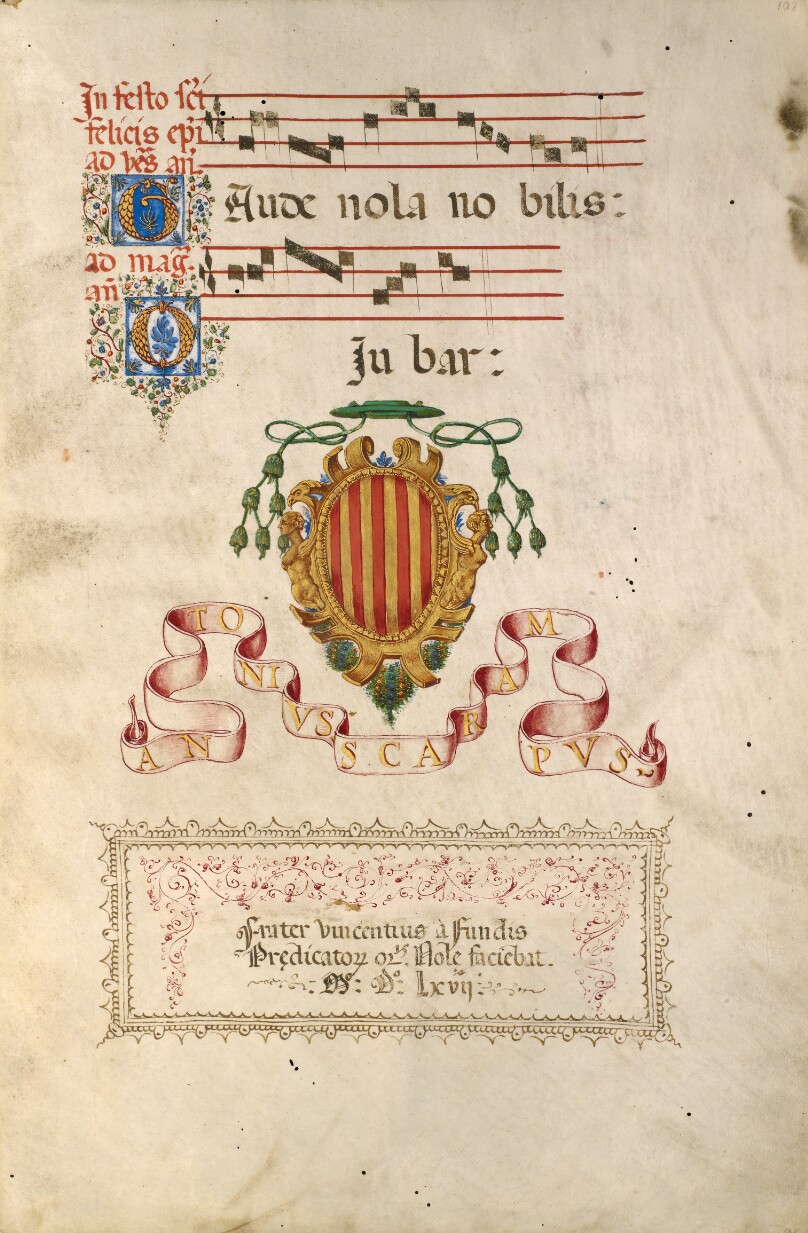 In festo scĩ
felicis epĩ
ad vẽs añ.
GAude nola no bilis:
ad mag̃.
añ
O
Iu bar:
ANTONIVS SCARAMPVS
Frater vincentius à Fundis
Prędicatoꝝ orꝭ. Nolę faciebat.
Mº: Dº: Lxvij: